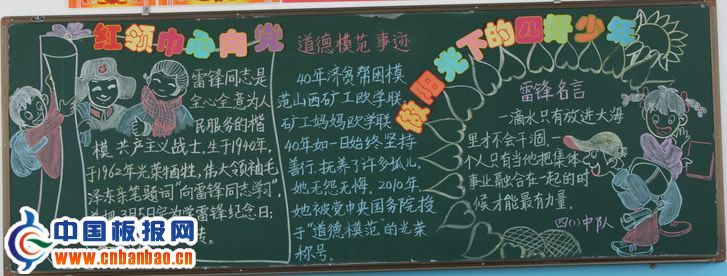 红领巾心向党
雷锋同志是
全心全意为人
民服务的楷
模、共产主义战士.生于1940年,
于1962年光荣牺牲,伟大领袖毛
泽东亲笔题词“向雷锋同志学习”,
把3月5日定为学雷锋纪念日;
道德模范事迹
40年济贫帮困模
范山西矿工欧学联.
矿工妈妈欧学联
40年如一日始终坚持
善行.抚养了许多孤儿,
她无怨无悔.2010年,
她被党中央国务院授
于“道德模范”的光荣
称号。
做阳光下的四好少年
雷锋名言
一滴水只有放进大海
里才不会干涸,一
个人只有当他把集体
事业融合在一起的时
候才能最有力量。
四(1)中队
中国板报网
www.cnbanbao.cn